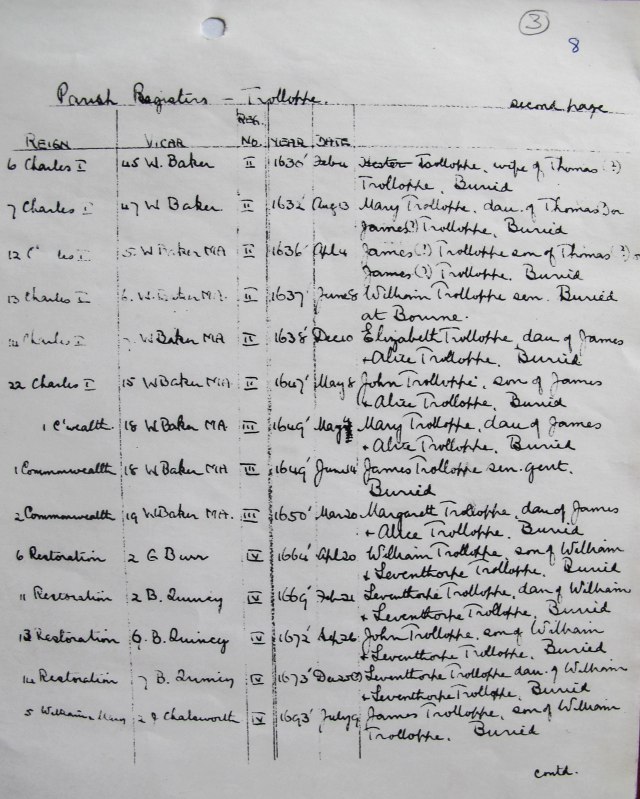 3
8
Parish Registers - Trolloppe. second page
REIGN VICAR REG. No. YEAR DATE
6 Charles I 45 W. Baker II 1630 Feb 4 Hester Trolloppe, wife of Thomas (?)
Trolloppe. Buried
7 Charles I 47 W Baker II 1632 Aug 13 Mary Trolloppe, dau. of Thomas or
James (?) Trolloppe. Buried
12 C les I 5 W Baker MA II 1636 Apl 4 James (?) Trolloppe son of Thomas (?) or
James (?) Trolloppe. Buried
13 Charles I 6 W. Baker M.A. II 1637 June 8 William Trolloppe sen. Buried
at Bourne.
14 Charles I 7 W Baker MA II 1638 Dec 10 Elizabeth Trolloppe, dau of James
+ Alice Trolloppe. Buried
22 Charles I 15 W Baker MA II 1647 May 8 John Trolloppe, son of James
+ Alice Trolloppe. Buried
1 C'wealth 18 W Baker MA III 1649 May Mary Trolloppe, dau of James
+ Alice Trolloppe. Buried
1 Commonwealth 18 W Baker MA III 1649 June 14 James Trolloppe sen. gent.
Buried
2 Commonwealth 19 W Baker MA. III 1650 Mar 20 Margarett Trolloppe, dau of James
+ Alice Trolloppe. Buried
6 Restoration 2 G Burr IV 1664 Apl 20 William Trolloppe, son of William
+ Leventhorpe Trolloppe. Buried
11 Restoration 2 B. Quincy IV 1669 Feb 21 Leventhorpe Trolloppe, dau of William
+ Leventhorpe Trolloppe. Buried
13 Restoration 6 B. Quincey IV 1672 Sep 26 John Trolloppe, son of William
+ Leventhorpe Trolloppe. Buried
14 Restoration 7 B. Quincy IV 1673 Dec Leventhorpe Trolloppe dau. of William
+ Leventhorpe Trolloppe. Buried
5 William & Mary 2 J Chalsworth V 1693 July 9 James Trolloppe, son of William
Trolloppe. Buried
contd.